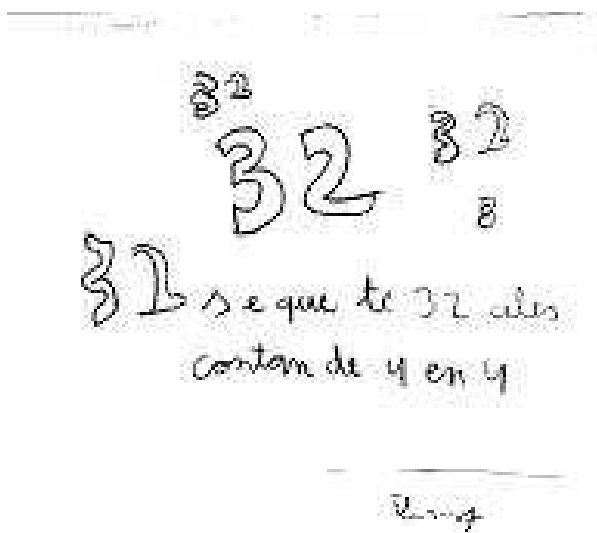 32
32
32
3
32 se que te 32 ales
contan de 4 en 4